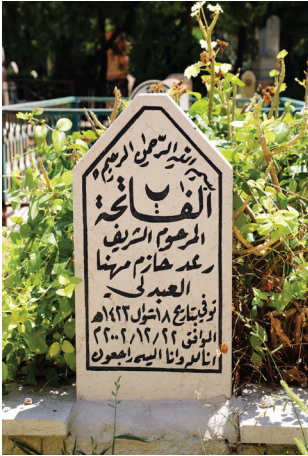 بسم الله الرحمن الرحيم
الفاتحة
المرحوم الشريف
رعد حازم مهنا
العبدلي
توفي بتاريخ ١٨ شوال ١٤٢٣هـ
الموافق ٢٢/١٢/٢٠٠٢
انا لله وانا اليه راجعون